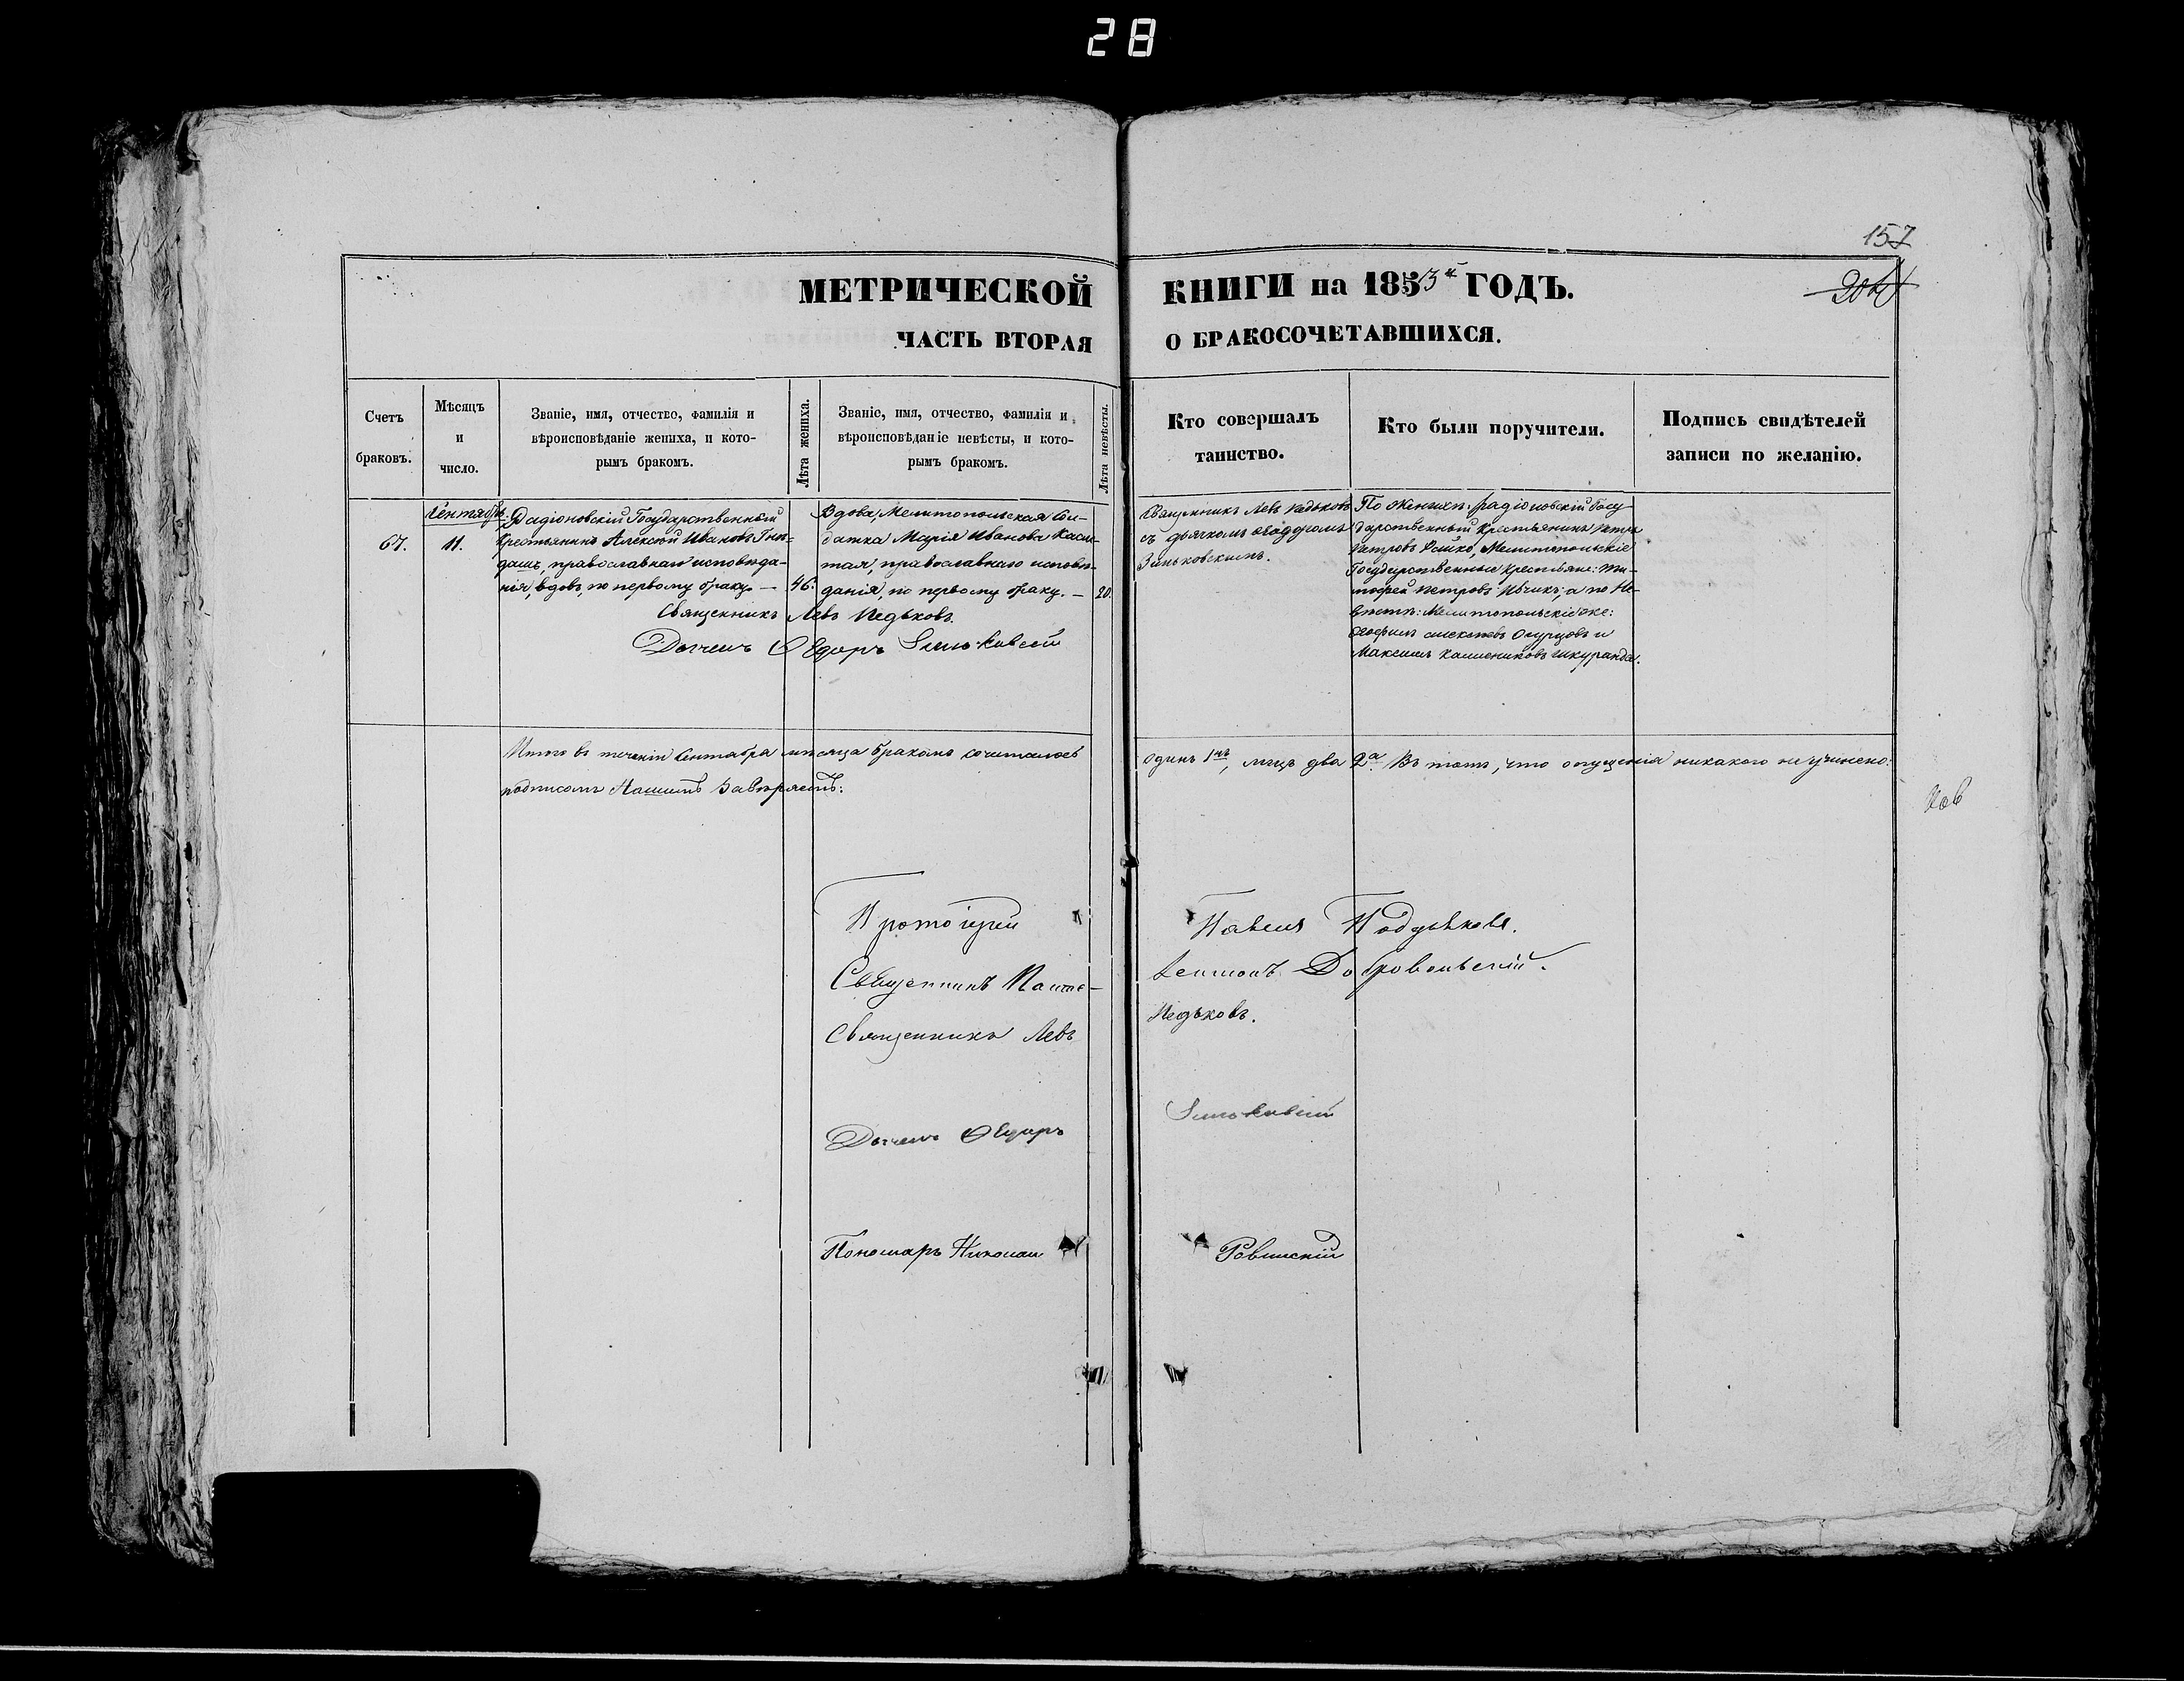 28
157
МЕТРИЧЕСКОЙ КНИГИ на 1853й ГОДЪ.
ЧАСТЬ ВТОРАЯ О БРАКОСОЧЕТАВШИХСЯ.
Счетъ браковъ.
Мѣсяцъ и число.
Званіе, имя, отчество, фамилія и
вѣроисповѣданіе жениха, и кото-
рымъ бракомъ.
Лѣта жениха.
Званіе, имя, отчество, фамилія и
вѣроисповѣданіе невѣсты, и кото-
рымъ бракомъ.
Лѣта невѣсты.
Кто совершалъ
таинство.
Кто были поручители.
Подпись свидѣтелей
записи по желанію.
67.
Сентябр.
11.
Радіоновскій Государственный
Крестьянинъ Алексѣй Ивановъ Гни-
дашъ, православнаго исповѣда-
нія, вдовъ, по первому браку. —
46.
Вдова, Мелитопольская Сол-
датка Марія Иванова
православнаго исповѣ-
данія, по первому браку. —
20.
Священникъ Левъ Педьковъ.
Дьячекъ Ѳедоръ Зиньковскій
Священникъ Левъ Педьковъ
съ дьячкомъ Ѳеодоромъ
Зиньковскимъ.
По Женихѣ: Радіоновскій Госу
дарственный Крестьянинъ Петръ
Петровъ Мелитопольскіе
Государственные Крестьяне: Ти-
мофей Петровъ а по Не-
вѣстѣ: Мелитопольскіе же:
Огурцовъ и
Максимъ Шкуранда.
Итого въ теченіи Сентября мѣсяца бракомъ сочеталось одинъ 1нъ, лицъ два 2а. Въ томъ, что опущенія никакого не учинено:
подписомъ Нашимъ Завѣряемъ:
Протоіерей Павелъ Подуньковъ.
Священникъ Добровольскій.
Священникъ Левъ Педьковъ.
Дьячекъ Ѳедоръ Зиньковскій
Пономарь Николай Ровинскій